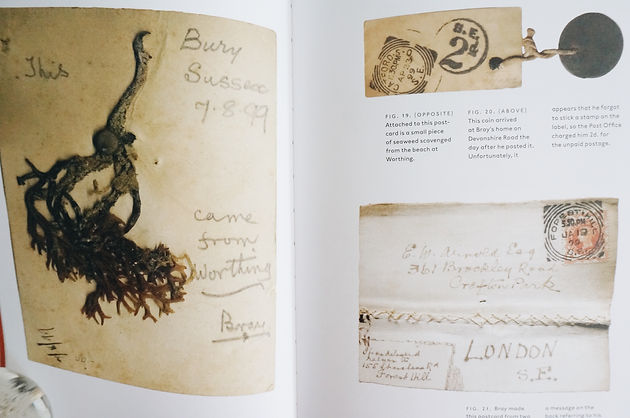 Bury
Sussex
7.8.99
This
came
from
Worthing
Bray
S.E.
2d
FIG. 19. (OPPOSITE)
Attached to this post-
card is a small piece
of seaweed scavenged
from the beach at
Worthing.
FIG. 20. (ABOVE)
This coin arrived
at Bray's home on
Devonshire Road the
day after he posted it.
Unfortunately, it
appears that he forgot
to stick a stamp on the
label, so the Post Office
charged him 2d. for
the unpaid postage.
FOREST HILL
5.30PM
JA 19
99
E. W. Arnold Esq
361 Brockley Road
Crofton Park
LONDON
S.E.
Forest Hill
FIG. 21. Bray made
this postcard from two
a message on the
back referring to his